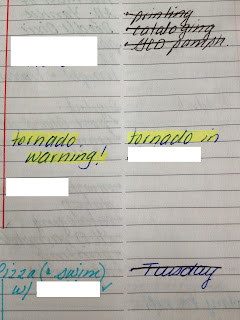 - printing
- cataloging
- GED pamph.
tornado
warning!
tornado in
Pizza (& swim)
w/
Tuesday